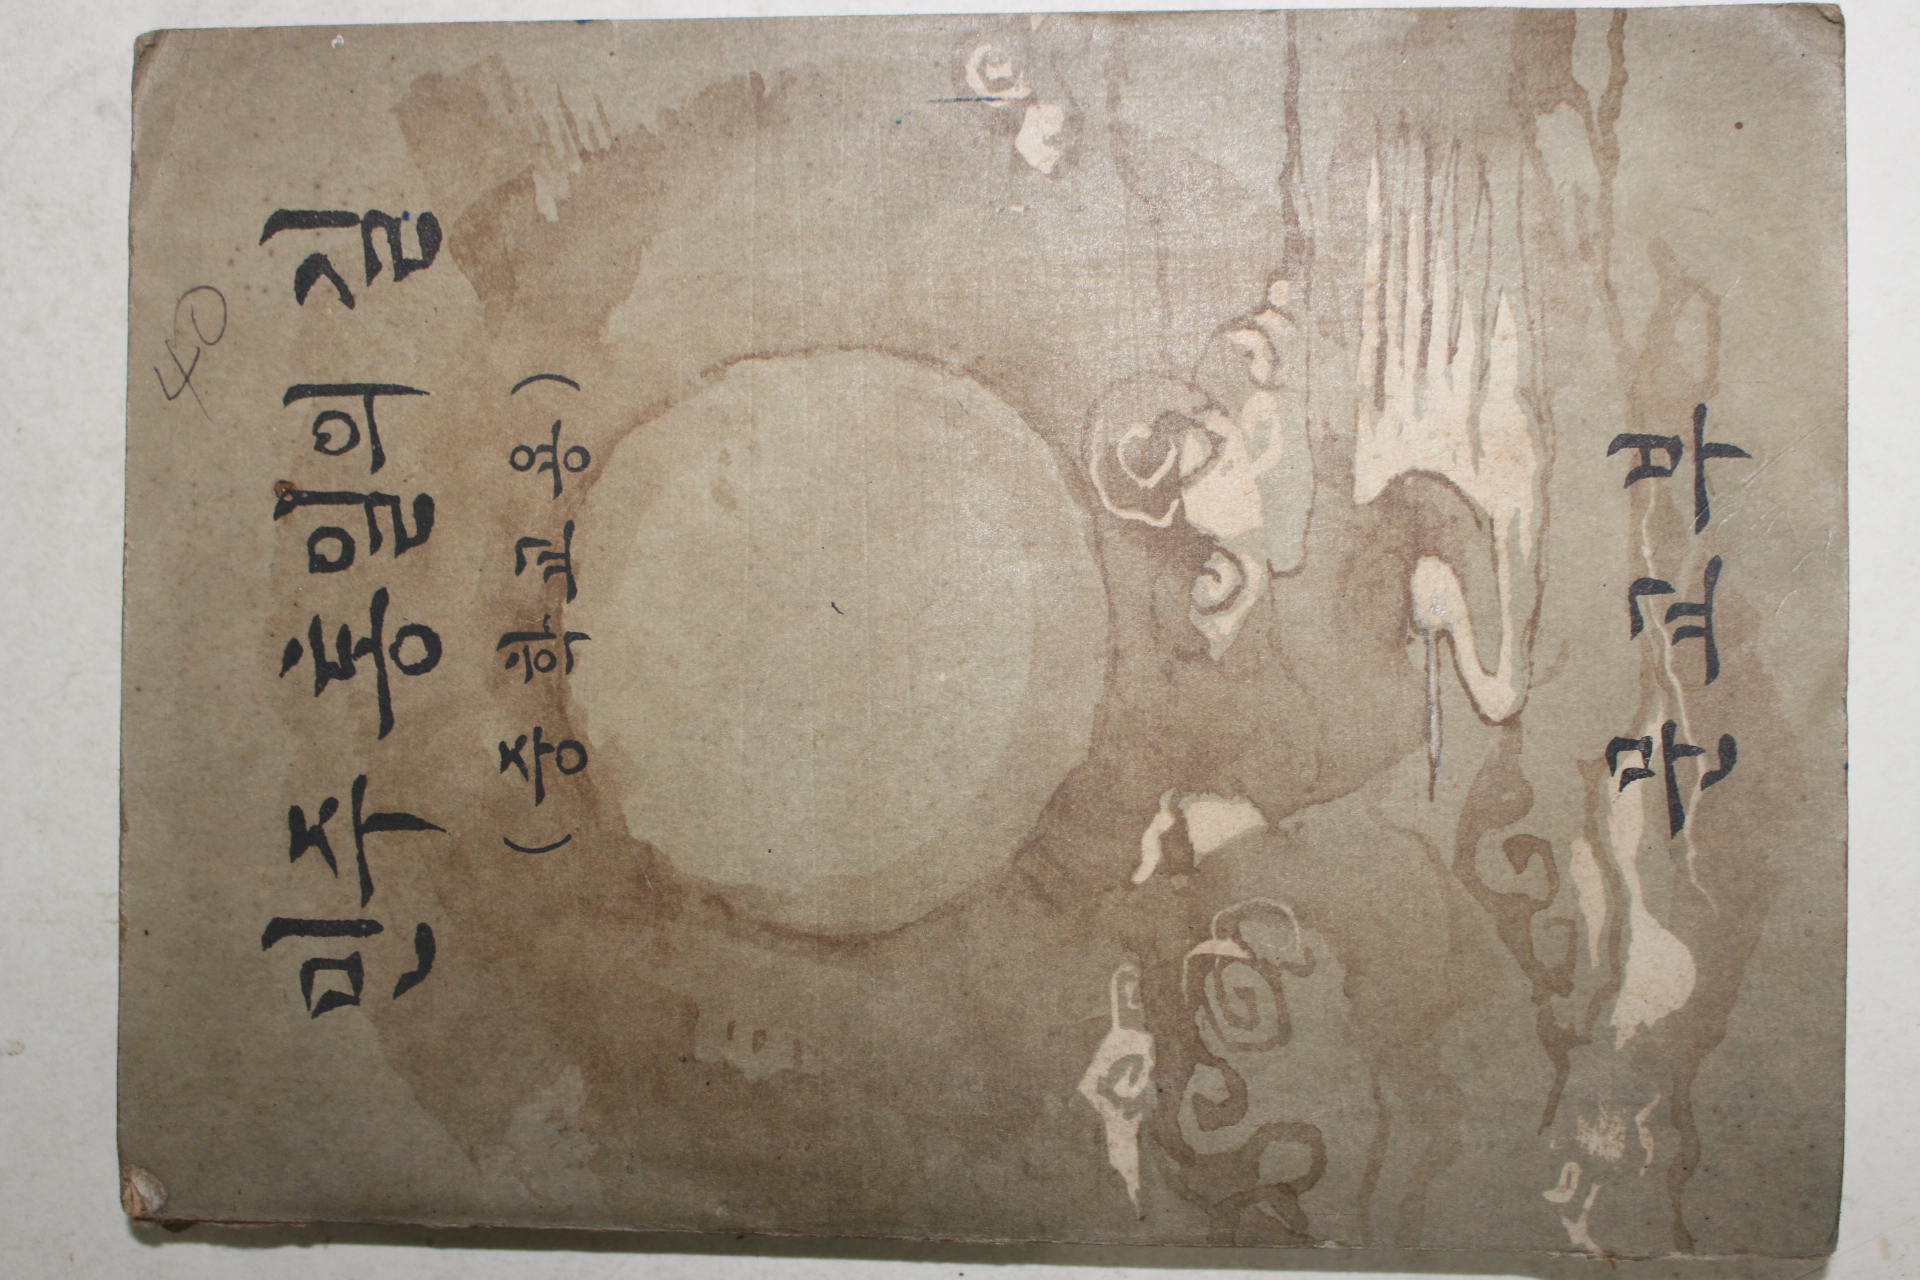 민주 통일의 길
(중학교용)
문교부
40